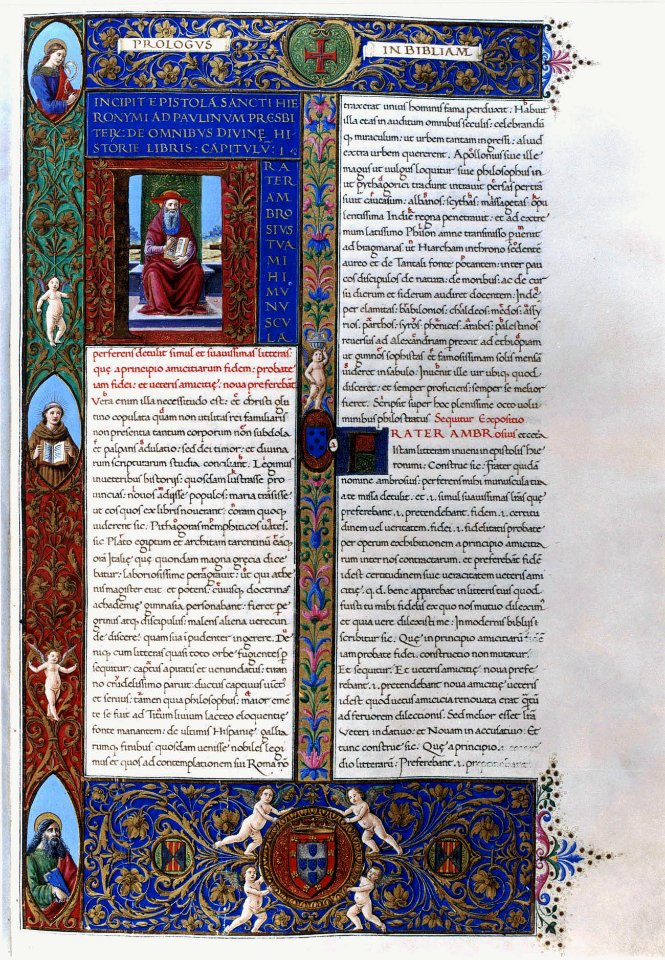 PROLOGVS IN BIBLIAM
INCIPIT EPISTOLA SANCTI HIE
RONYMI AD PAVLINVM PRESBI
TERṼ: DE OMNIBVS DIVINE HI
STORIE LIBRIS: CAPITVLV̄: I
F RATER
AM
BRO
SIVS
TVA
MI
HI
MV
NV
SCV
LA
perferens detulit simul et suavissimas litteras:
que a principio amicitiarum fidem: probate
iam fidei: et veteris amicitie, nova preferebāt.
Vera enim illa necessitudo est: et christi glu
tino copulata quam non utilitas rei familiaris
non presentia tantum corporum non subdola
et palpans adulatio: sed dei timor: et divina
rum scripturarum studia conciliant. Legimus
in veteribus historiis: quosdam lustrasse pro
vincias: novos adiisse populos: maria transisse
ut eos quos ex libris noverant: coram quoq
viderent. Sic Pithagoras memphiticos vates.
sic Plato egiptum et architam tarentinum eāq
orā Italie, que quondam magna grecia dice
batur: laboriosissime peragravit: ut qui athe
nis magister erat et potens: cuiusq doctrinas
achademie gimnasia personabant: fieret pe
grinus atq discipulus: malens aliena verecun
de discere: quam sua ipudenter ingerere. De
niq cum litteras quasi toto orbe fugientes p
sequitur: captus a piratis et venundatus: tiran
no crudelissimo paruit: ductus captivus vīct
et servus: tamen quia philosophus: maior eme
te se fuit. ad Titum livium lacteo eloquentie
fonte manantem: de ultimis Hispanie, gallia
rumq finibus quosdam venisse nobiles legi
mus et quos ad contemplationem sui Roma nō
traxerat unius hominis fama perduxit. Habuit
illa etas in auditum omnibus seculis: celebrandū
q miraculum: ut urbem tantam ingressi: aliud
extra urbem quererent. Apollonius sive ille
magus ut vulgus loquitur sive philosophus ut
ut pythagorici tradunt intravit persas pertrā
sivit caucasum: albanos: scythas: massagetas: opu
lentissima Indie, regna penetravit: et ad extre
mum latissimo Phison amne transmisso pvenit
ad bragmanas ut Hiarcham in throno sedentē
aureo et de Tantali fonte potantem: inter pau
cos discipulos de natura: de moribus: ac de cur
su dierum et siderum audiret docentem: Inde
per elamitas: babilonios: chaldeos: medos: assy
rios: parthos: syros: phenices: arabes: palestinos
reversus ad alexandriam prexit ad ethiopiam
ut gimnosophistas et famosissimam solis mensā
videret in sabulo: Invenit ille vir ubiq quod
disceret: et semper proficiens: semper se melior
fieret. Scripsit super hoc plenissime octo volu
minibus philostratus. Sequitur Expositio
FRATER AMBROsius et cetera
Istam litteram inveni in epistolis hie
ronimi: Construe sic. frater quidā
nomine ambrosius: perferens mihi minuscula tua
ate missa detulit. et .i. simul suavissimas lrās que
preferebant .i. pretendebant. fidem .i. certitu
dinem vel veritatem. fidei .i. fidelitatis probate
per operum exhibitionem a principio amicitia
rum inter nos contractarum. et preferebāt fidē
idest certitudinem sive veracitatem veteris ami
citie, q. d. bene apparebat in litteris tuis quod
fuisti mihi fidelis ex quo nos mutuo dileximꝰ
et quia vere dilexisti me: In modernis bibliis
scribitur sic. Que in principio amicitiarū
iam probate fidei. constructio non mutatur.
Et sequitur. Et veteris amicitie, nova prefe
rebant .i. pretendebant nova amicitie, veteris
idest quod vetus amicicia renovata erat qtū
ad fervorem dilectionis. Sed melior esset lrā
Veteri in dativo: et Novam in accusativo: Et
tunc construe sic: Que a principio .a
dio litterarū: Preferebant .i. pretendebant